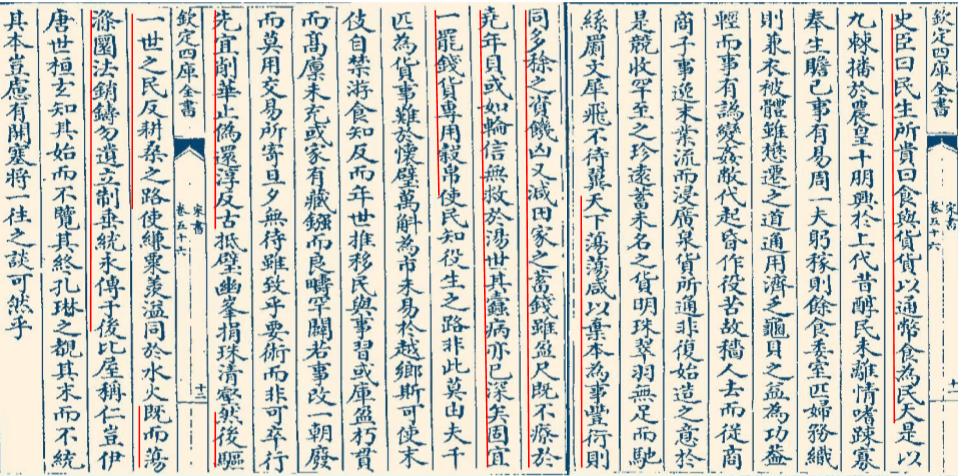 欽定四庫全書
宋書
卷五十六
十一
史臣曰民生所貴曰食與貨貨以通幣食為民天是以
九棘播於農皇十朋興於上代昔醇民未離情嗜踈寡
奉生贍己事有易周一夫躬稼則餘食委室匹婦務織
則兼衣被體雖懋遷之道通用濟乏龜貝之益為功蓋
輕而事有譌變姦敝代起昏作役苦故穡人去而從商
商子事逸末業流而浸廣泉貨所通非復始造之意於
是競收罕至之珍遠蓄未名之貨明珠翠羽無足而馳
絲罽文犀飛不待翼天下蕩蕩咸以棄本為事豐衍則
同多稌之資饑凶又減田家之蓄錢雖盈尺既不療於
堯年貝或如輪信無救於湯世其蠹病亦已深矣固宜
一罷錢貨專用穀帛使民知役生之路非此莫由夫千
匹為貨事難於懷璧萬斛為市未易於越鄉斯可使末
伎自禁游食知反而年世推移民與事習或庫盈朽貫
而高廩未充或家有藏鏹而良疇罕闢若事改一朝廢
而莫用交易所寄旦夕無待雖致乎要術而非可卒行
先宜削華止偽還淳反古抵璧幽峯捐珠清壑然後驅
欽定四庫全書
宋書
卷五十六
十二
一世之民反耕桑之路使縑粟羨溢同於水火既而蕩
滌圜法銷鑄勿遺立制垂統永傳于後比屋稱仁豈伊
唐世桓玄知其始而不覽其終孔琳之覩其末而不統
其本豈慮有開塞將一往之談可然乎